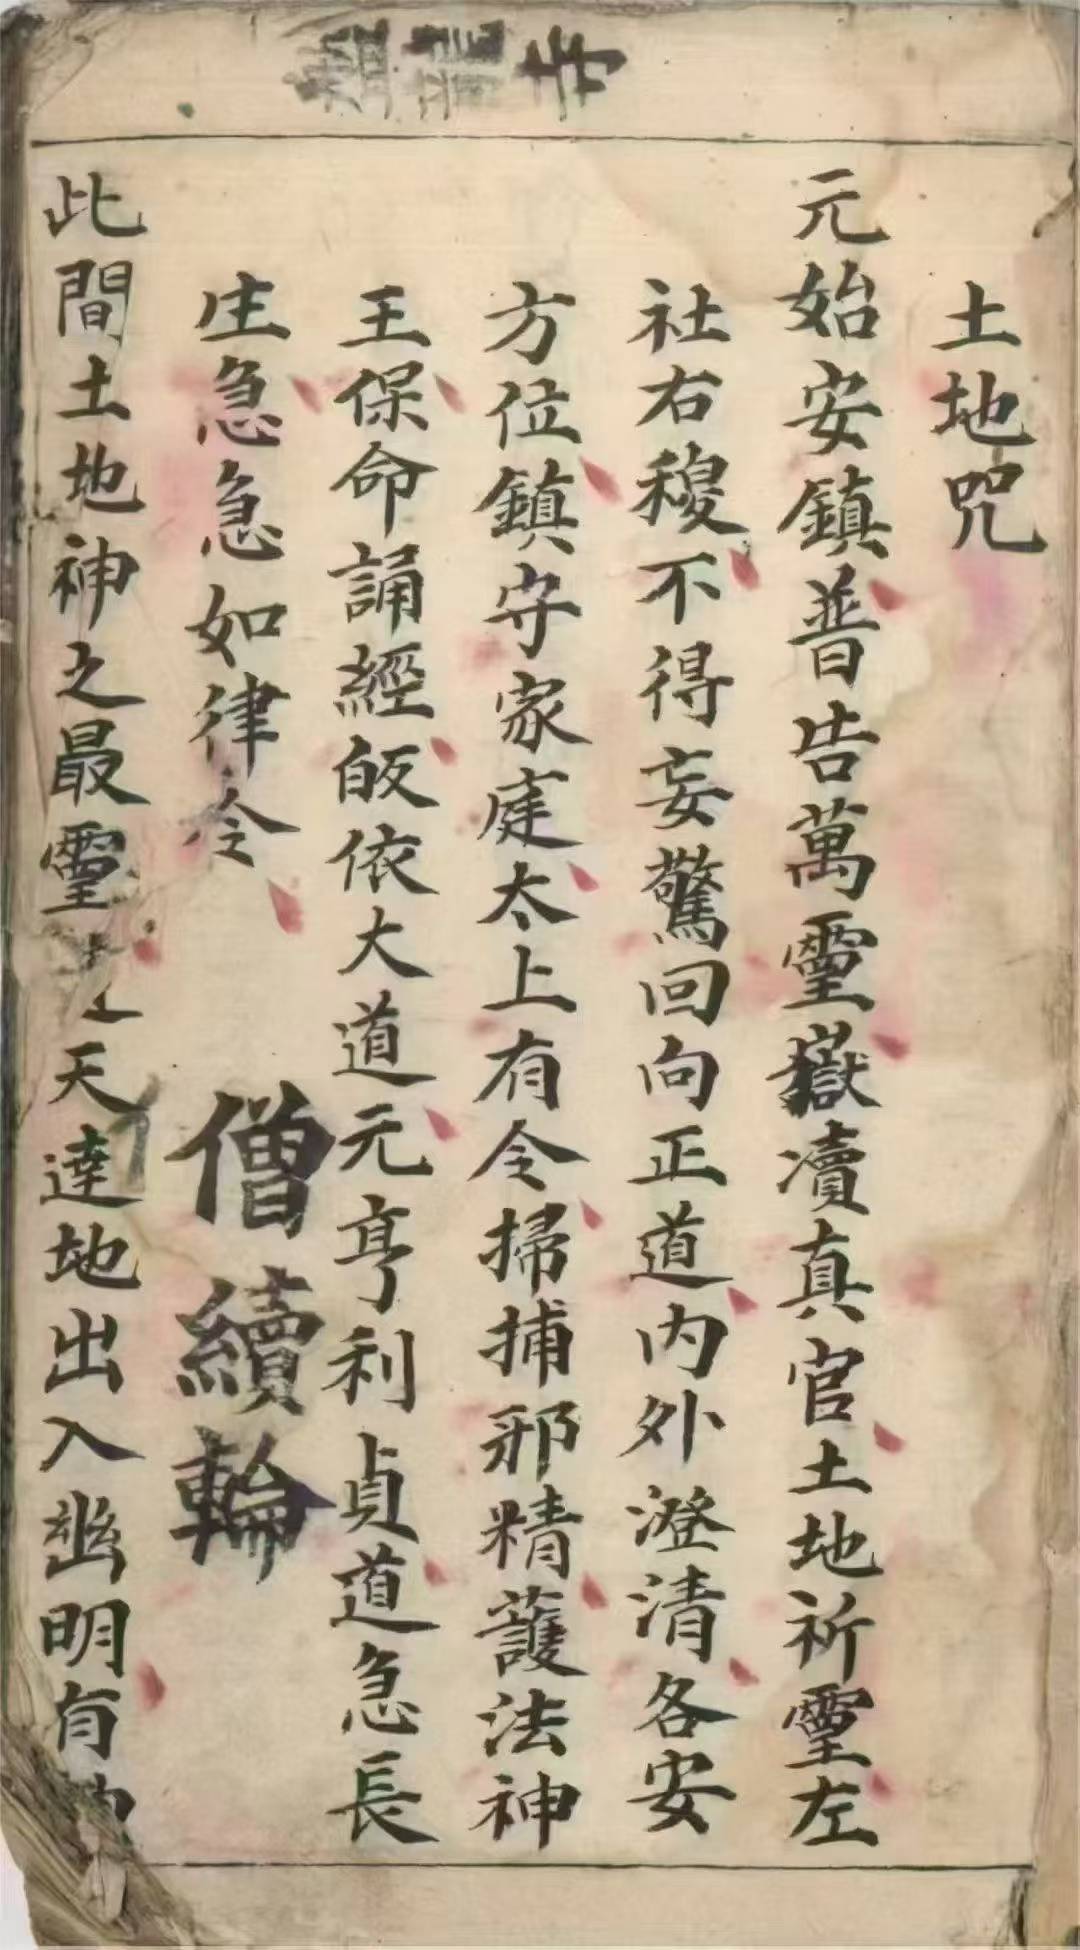 土地咒
元始安鎮普告萬靈嶽瀆真官土地祈靈左
社右稷不得妄驚回向正道内外澄清各安
方位鎮守家庭太上有令掃捕邪精護法神
王保命誦經皈依大道元亨利貞道急長
生急急如律令
僧續輪
此間土地神之最靈天達地出入幽明有